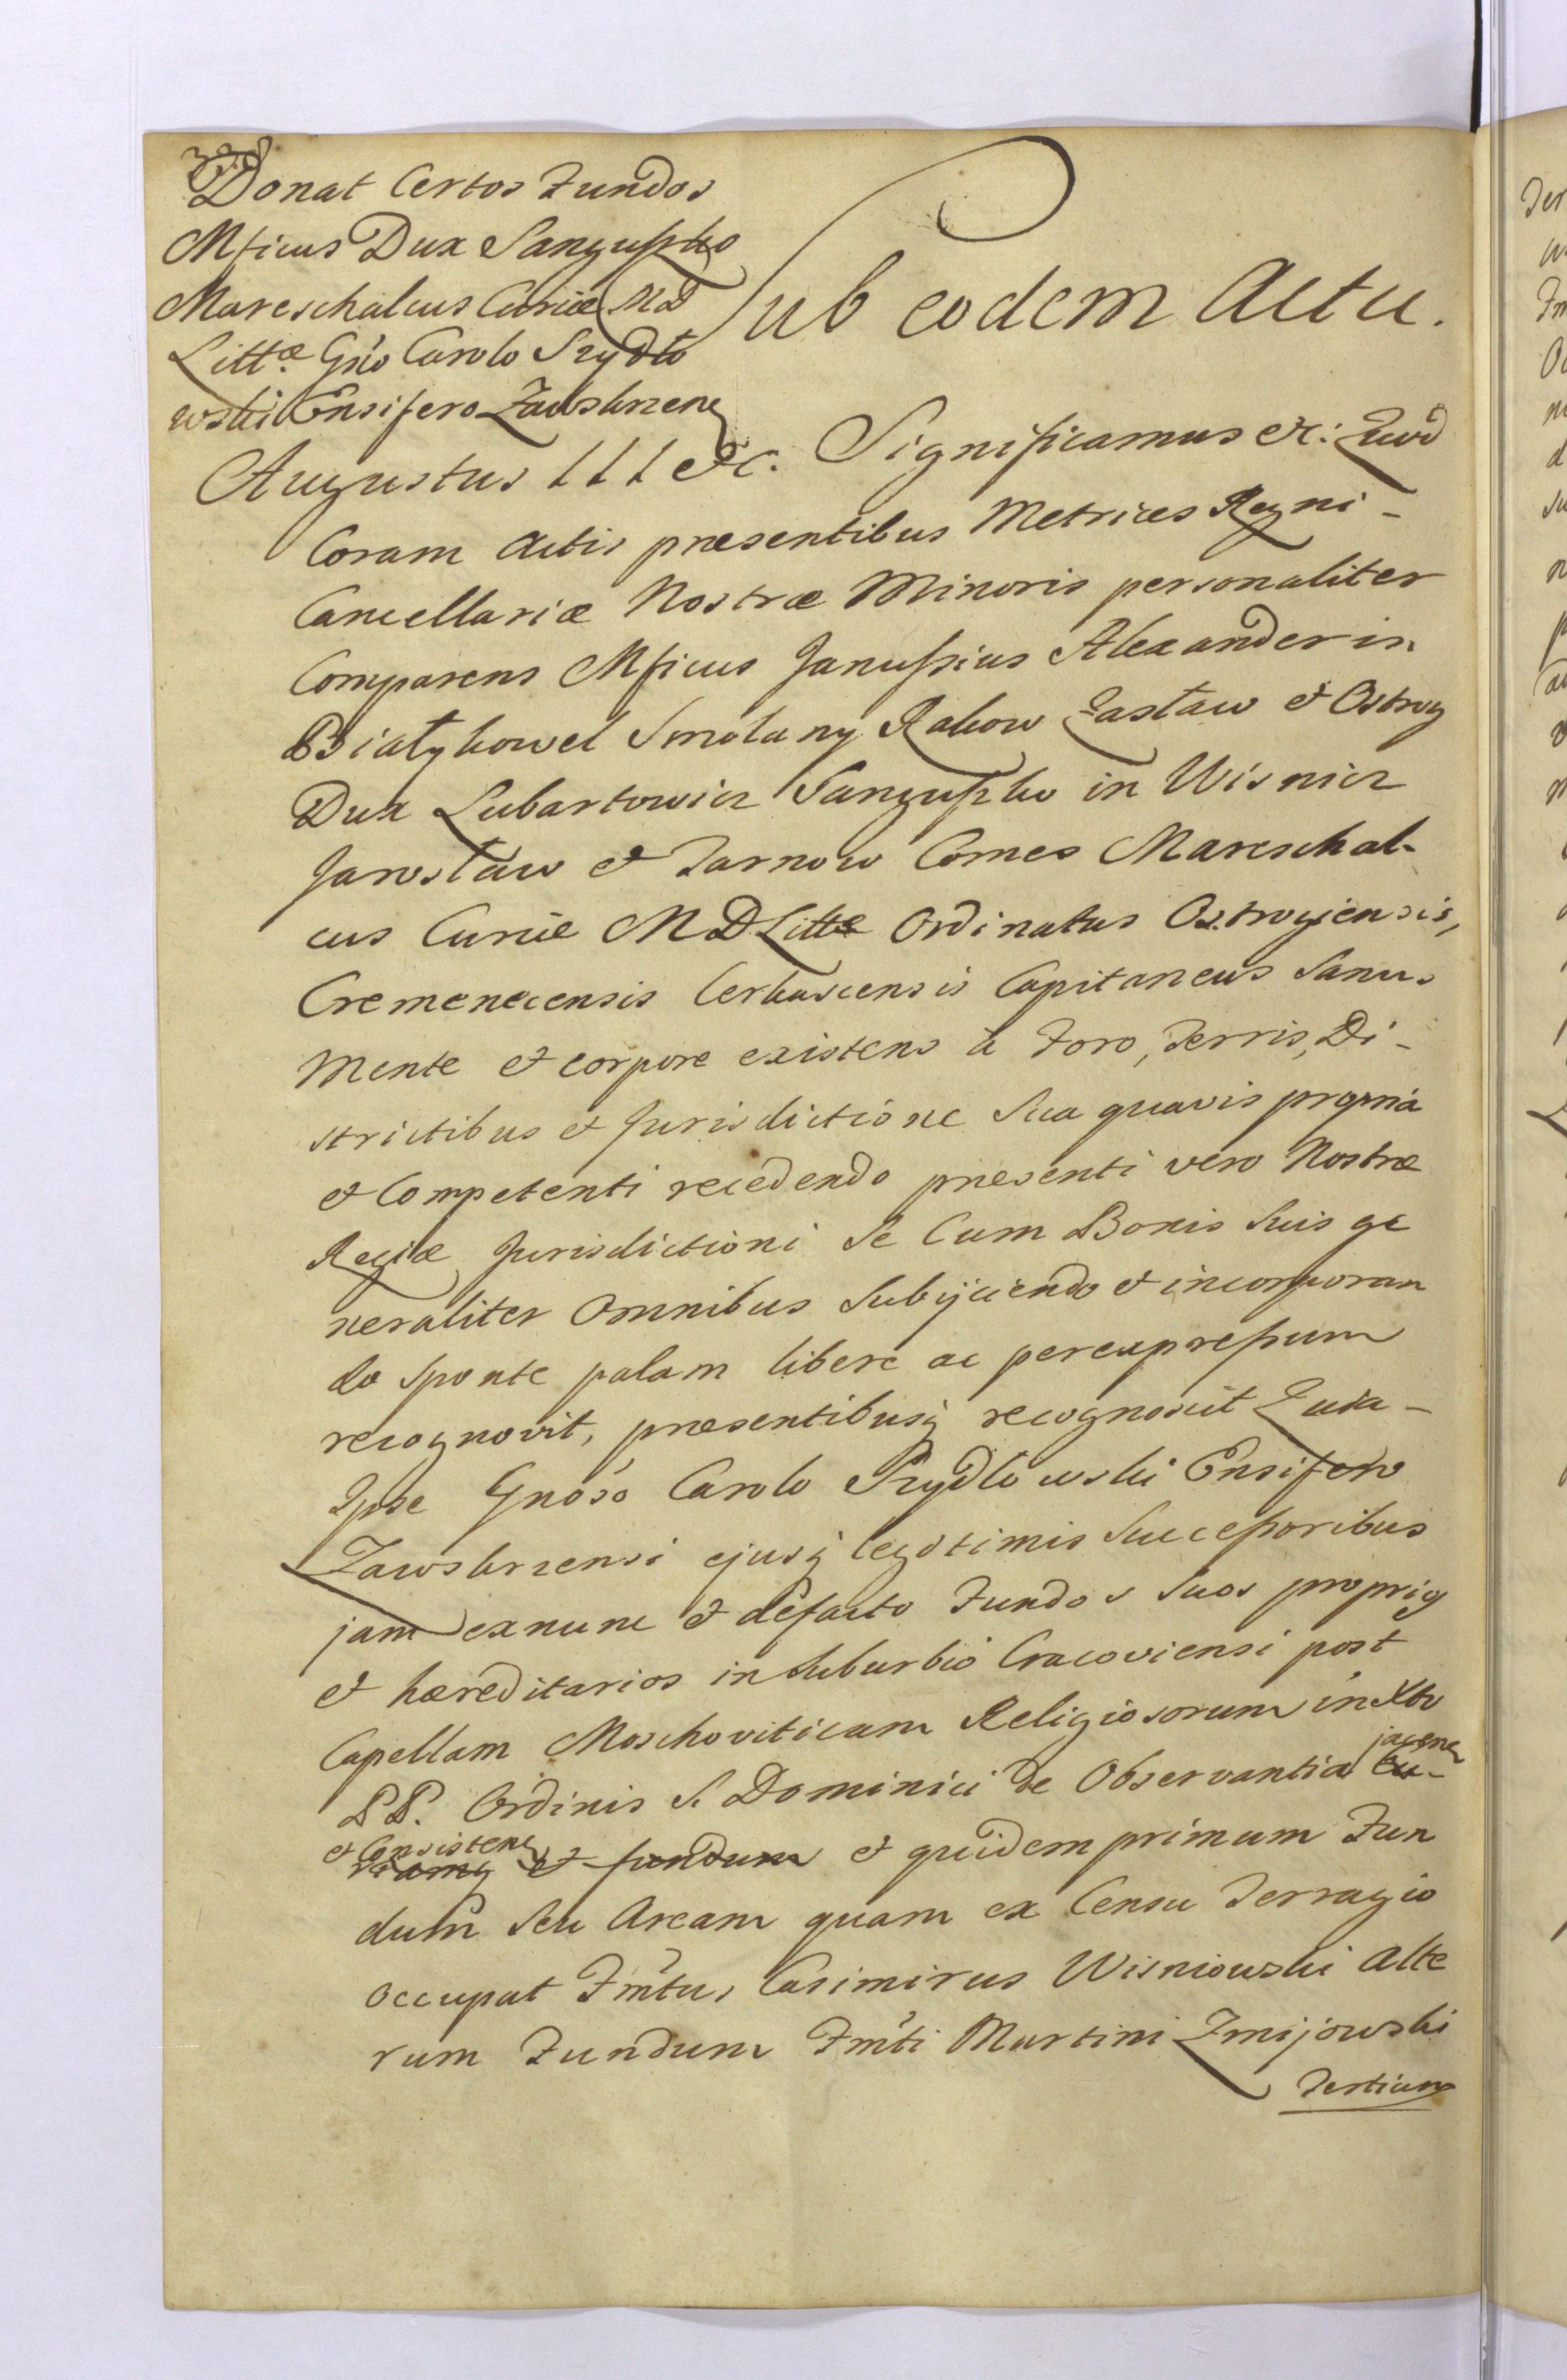 Donat Certos Fundos
Mficus Dux Sanguszko
Mareschalcus Curiæ MD
Littæ Gn̄so Carolo Szydło
wski Ensifero Zawskrzen
Sub eodem Actu.
Augustus III &c. Significamus &c: Quod
Coram Actis præsentibus Metrices Regni -
Cancellariæ Nostræ Minoris personaliter
Comparens Mficus Janussius Alexander in
Białykowel Smolany Rakow Zasław et Ostrog
Dux Lubartowicz Sanguszko in Wisnicz
Jarosław et Tarnow Comes Mareschal-
cus Curiæ MD Littæ Ordinatus Ostrogiensis,
Cremenecensis Cerkascensis Capitaneus Sanus
Mente et corpore existens à Foro, Terris, Di-
strictibus et Jurisdictione Sua quavis propria
et Competenti recedendo præsenti vero Nostræ
Regiæ Jurisdictioni Se Cum Bonis Suis ge
neraliter Omnibus Subijciendo et incorporan
do Sponte palam libere ac per expressum
recognovit, præsentibusq recognoscit Quia -
Ipse Gnoso Carolo Szydłowski Ensifero
Zawskrzensi ejusq legitimis Successoribus
jam exnunc et defacto Fundos Suos proprios
et hæreditarios in Suburbio Cracoviensi post
Capellam Moschoviticam Religiosorum in Xto
PP. Ordinis S. Dominici de Observantia jacen
et Consisten et fundum et quidem primum Fun
dum Seu Aream quam ex Censu Terragio
Occupat Fm̄tus Casimirus Wisniowski Alte
rum Fundum Fm̄ti Martini Zmijowski
Tertium